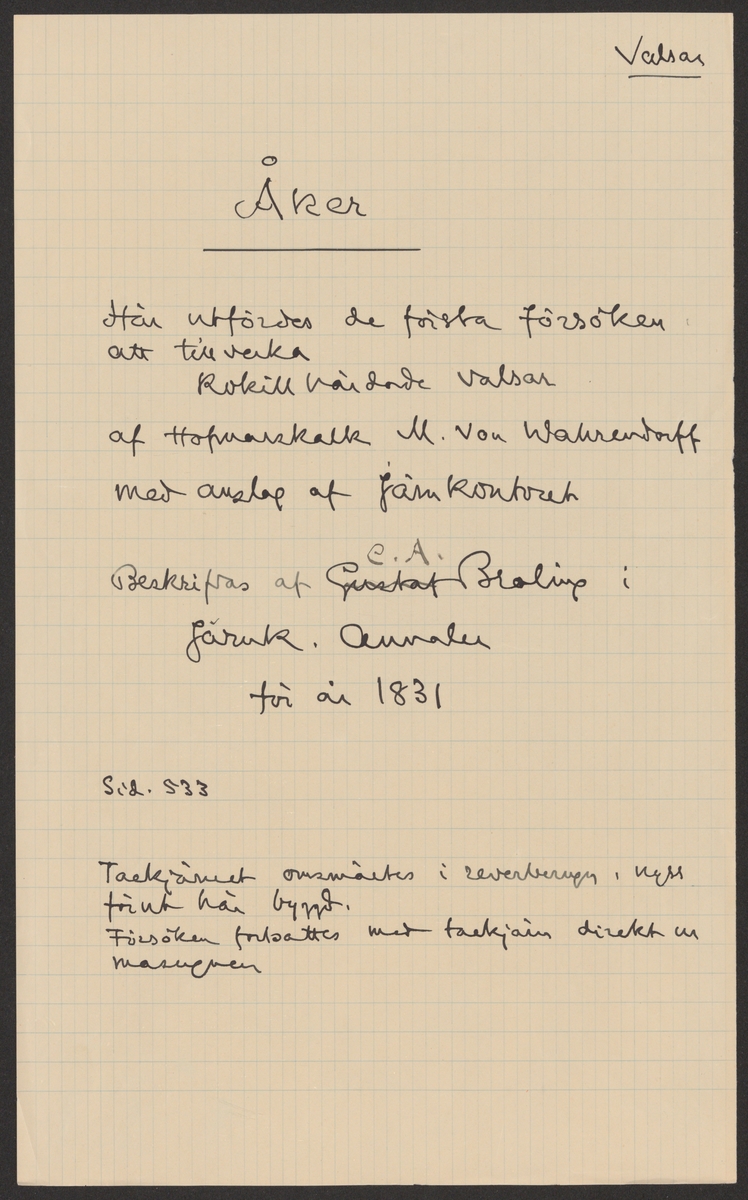 Valsar
Åker
Här utfördes de första försöken
att tillverka
Kokillhärdade valsar
af Hofmarskalk M. von Wahrendorff
med anslag af Järnkontoret
C. A.
Beskrifvas af Gustaf Broling i
Järnk. Annaler
för år 1831
Sid. 533
Tackjärnet omsmältes i reverberugn, nyss
förut här byggd.
Försöken fortsattes med tackjärn direkt ur
masugnen